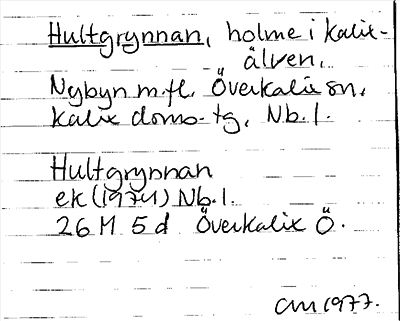 Hultgrynnan, holme i Kalix-
älven.
Nybyn m.fl. Överkalix sn,
Kalix doms-tg, Nb.l.
Hultgrynnan
ek (1974) Nb.l.
26 M 5d Överkalix Ö.
CM 1977.